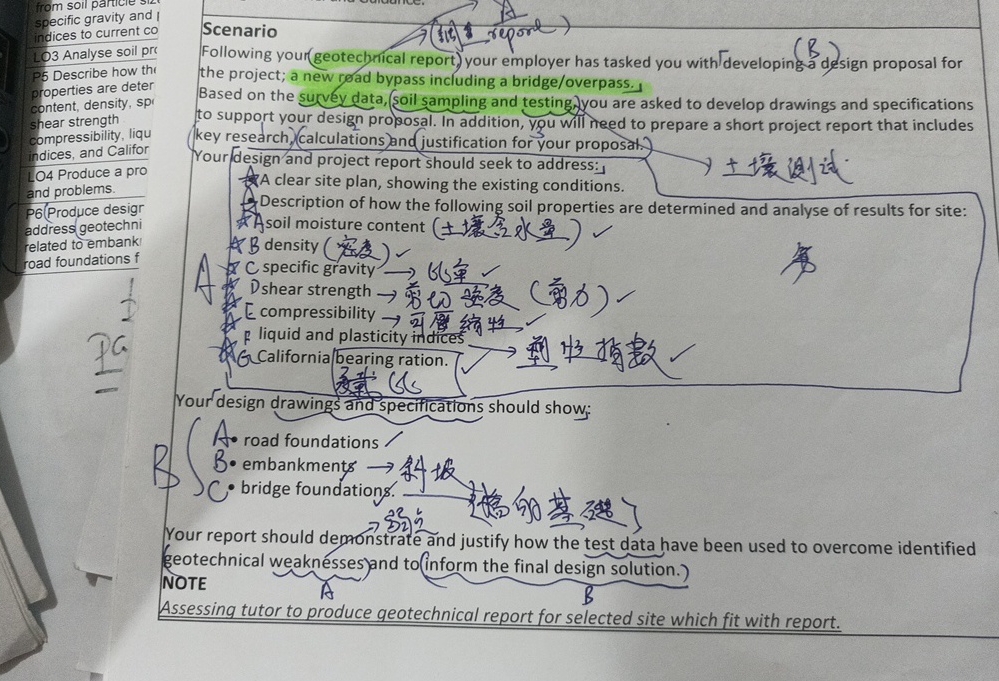 from soil particle
specific gravity and
indices to current co
LO3 Analyse soil pr
P5 Describe how the
properties are deter
content, density, sp
shear strength
compressibility, liqu
indices, and Califor
LO4 Produce a pro
and problems.
P6 Produce design
address geotechni
related to embank
road foundations f
PG
A
report)
Scenario
(B)
Following your geotechnical report, your employer has tasked you with developing a design proposal for
the project; a new road bypass including a bridge/overpass.
Based on the survey data, soil sampling and testing, you are asked to develop drawings and specifications
to support your design proposal. In addition, you will need to prepare a short project report that includes
2 3
key research, calculations and justification for your proposal.
土壤測試
Your design and project report should seek to address:
A clear site plan, showing the existing conditions.
Description of how the following soil properties are determined and analyse of results for site:
A soil moisture content (土壤含水量) ✓
B density (密度) ✓
A C specific gravity → 比重 ✓
D shear strength → 剪切強度 (剪力) ✓
E compressibility → 可壓縮性 ✓
F liquid and plasticity indices → 塑性指數 ✓
G California bearing ration. ✓
承載比
Your design drawings and specifications should show:
A • road foundations ✓
B B • embankments → 斜坡
C • bridge foundations. 基礎
弱点
Your report should demonstrate and justify how the test data have been used to overcome identified
geotechnical weaknesses and to inform the final design solution.
A B
NOTE
Assessing tutor to produce geotechnical report for selected site which fit with report.